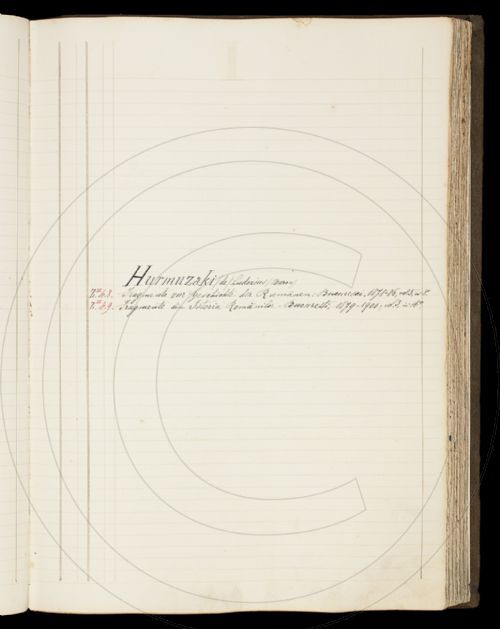 Hurmuzaki (de) (Eudoxius) Baron
Fragmente zur Geschichte der Rumänen. Bucuresci, 1878-86,
Fragmente din Istoria Românilor. Bucuresti, 1879-1900,